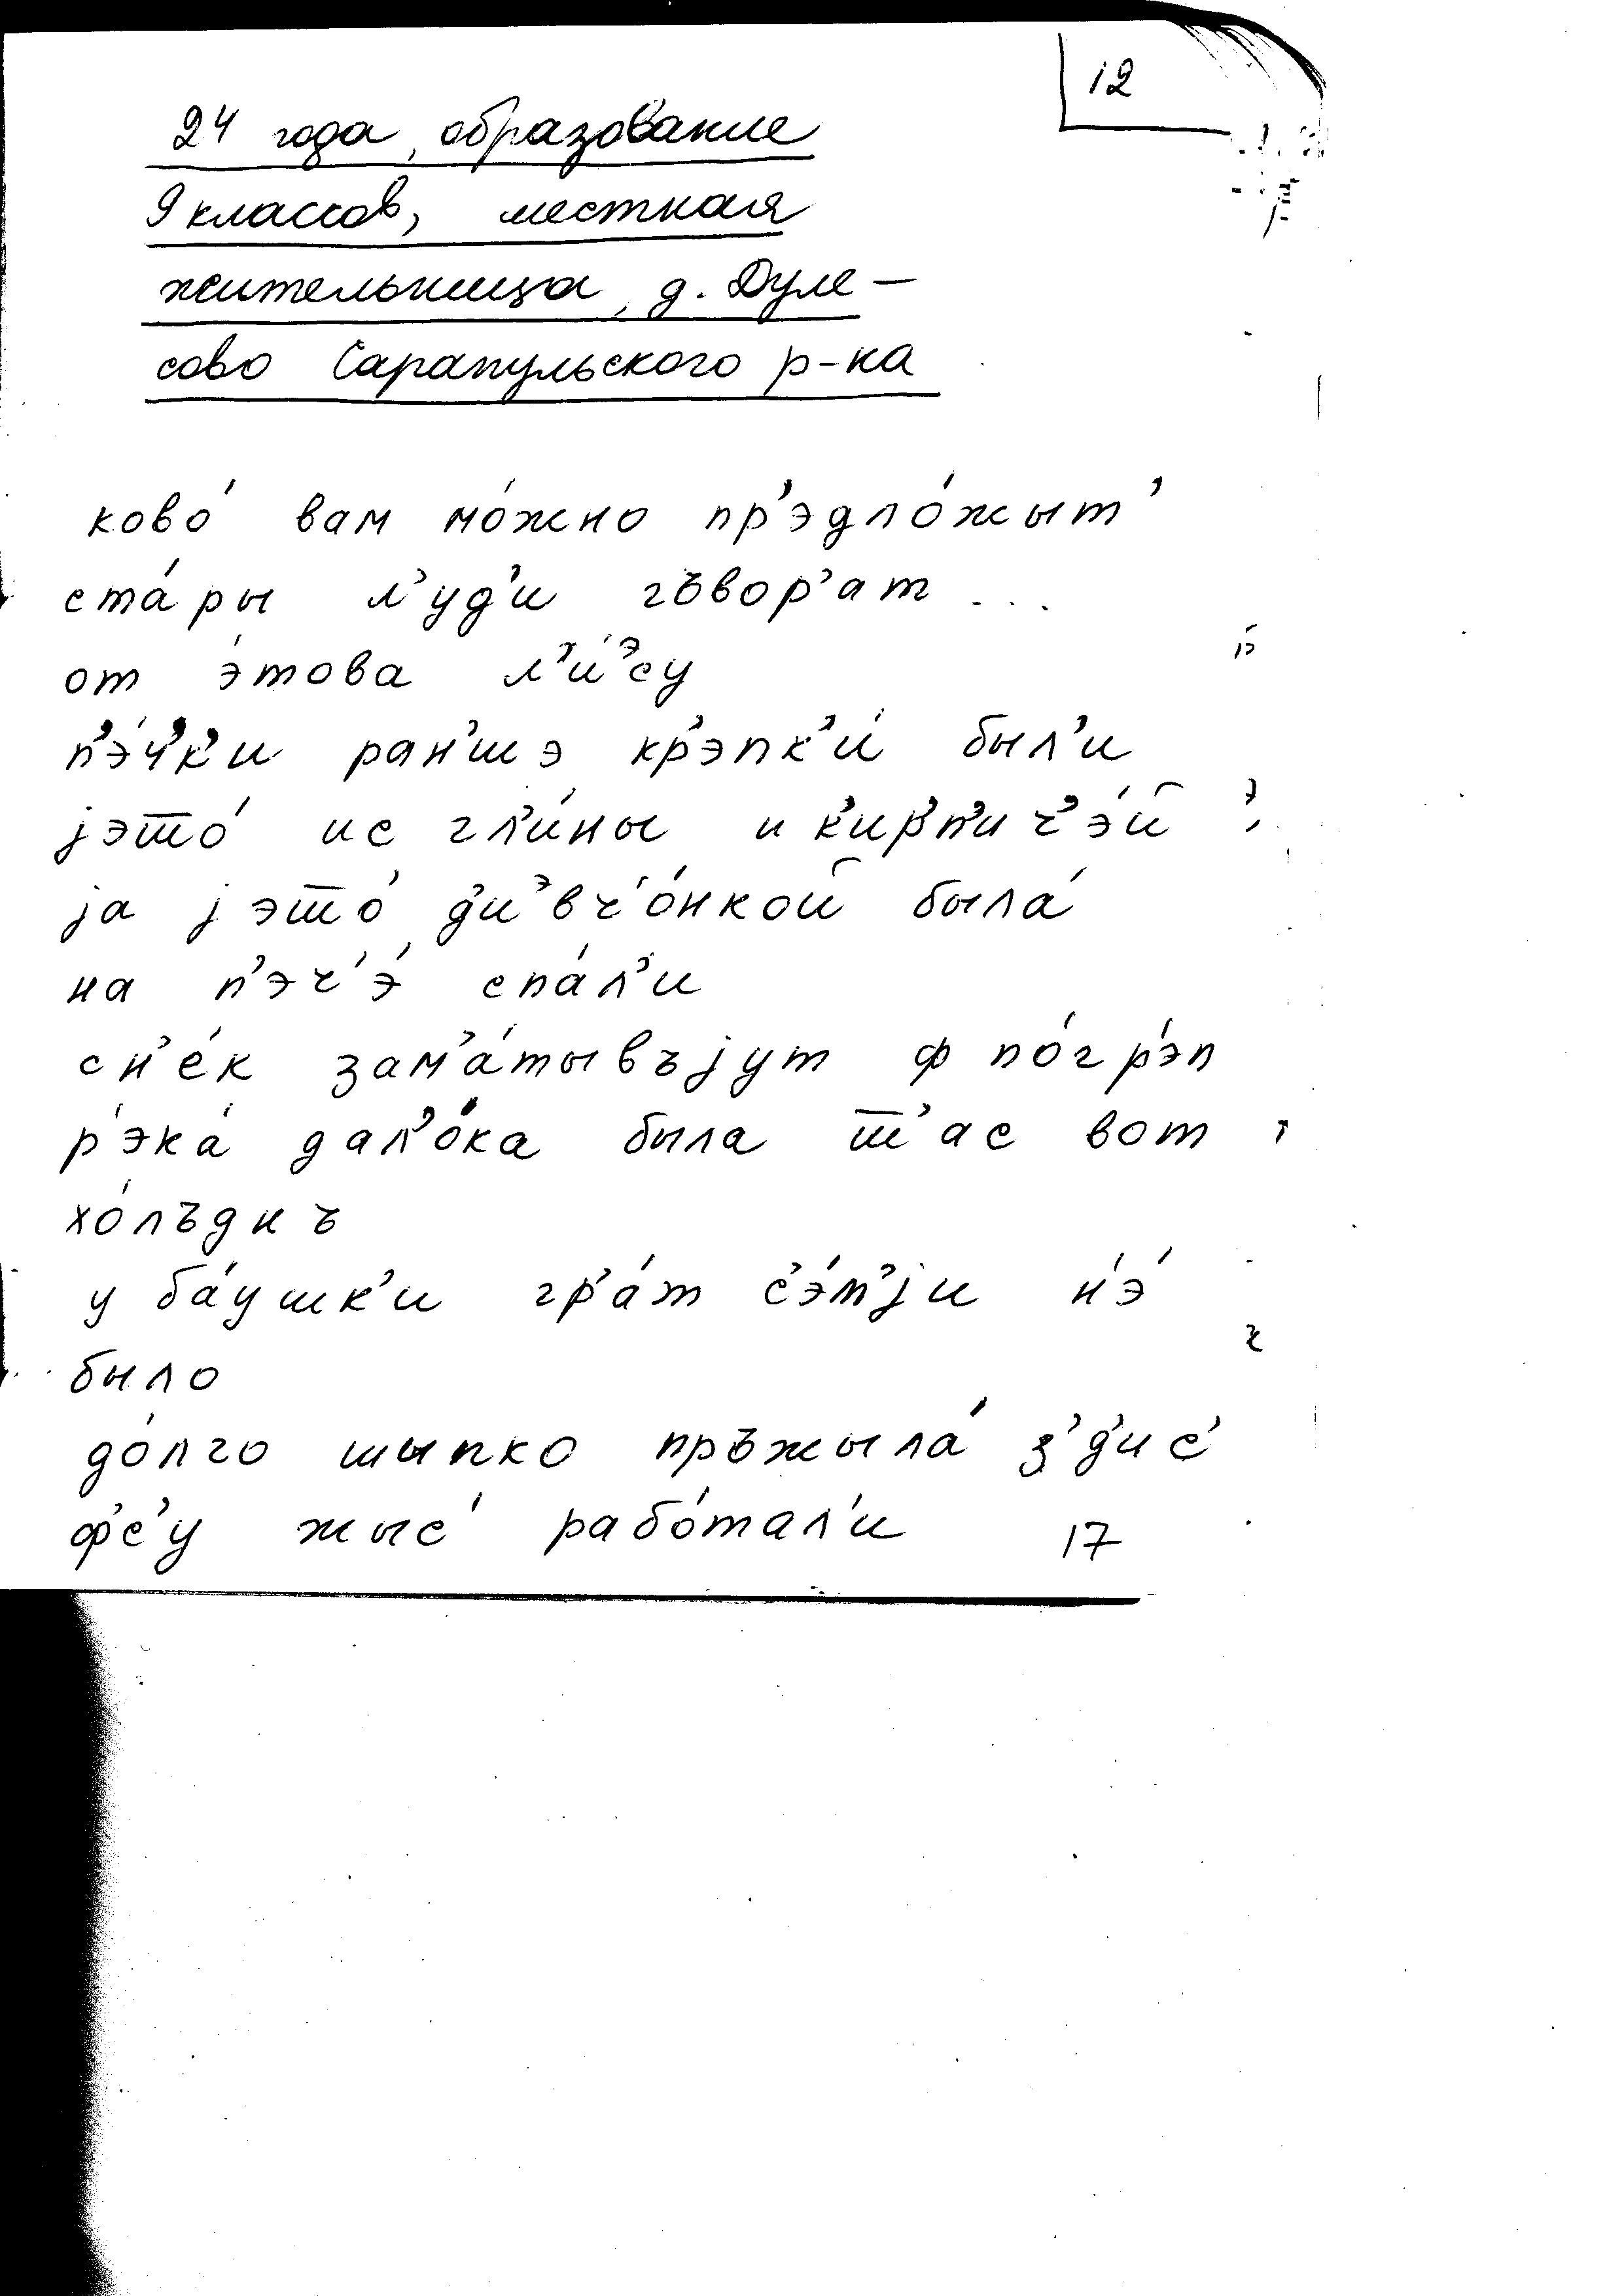 12
24 года, образование
9 классов, местная
жительница, д. Дуле-
сово Сарапульского р-ка
ково́ вам мо́жно пр'эдло́жыт'
ста́ры л'уд'и гъвор'ат ...
от э́това л'и́ᵊсу
п'э́ч'к'и ран'шэ кр'эпк'и́ был'и
jэто́ ис гл'и́ны и к'ирп'ич'э́й
jа jэто́ д'иᵊвч'о́нкой была́
на п'эч'э́ спа́л'и
сн'е́к зам'а́тывъjут ф по́гр'эп
р'эка́ дал'о́ка была т'ас вот
хо́лъднъ
у ба́ушк'и гр'а́т с'э́м'jи н'э́
было
до́лго шыпко пръжыла́ з'д'ис'
ф'с'у жыс' рабо́тал'и 17